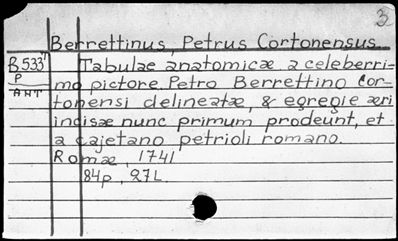 3
Berrettinus, Petrus Cortonensus.
B533T Tabulae anatomicæ a celeberri-
P mo pictore Petro Berrettino Cor-
ANT tonensi delineatæ, & egregie æri
incisæ nunc primum prodeunt, et
a cajetano petrioli romano.
Romæ, 1741
84p, 27L.